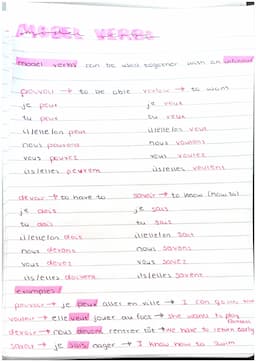 MODEL VERBS
model verbs can be used together with an infinitive
pouvoir → to be able
je peux
tu peux
il/elle/on peut
nous pouvons
vous pouvez
ils/elles peuvent
vouloir → to want
je veux
tu veux
il/elle/on veut
nous voulons
vous voulez
ils/elles veulent
devoir → to have to
je dois
tu dois
il/elle/on doit
nous devons
vous devez
ils/elles doivent
savoir → to know (how to)
je sais
tu sais
il/elle/on sait
nous savons
vous savez
ils/elles savent
examples/
pouvoir → je peux aller en ville → I can go into
vouloir → elle veut jouer au foot → she wants to play
devoir → nous devons rentrer tôt → we have to return early
savoir → je sais nager → I know how to swim